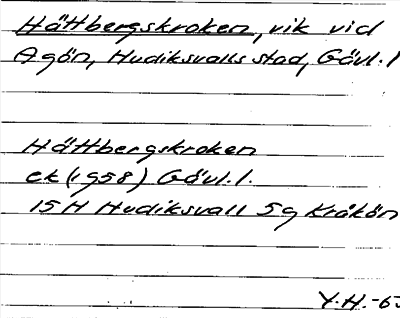 Hättbergskroken, vik vid
Agön, Hudiksvalls stad, Gävl. l
Hättbergskroken
ek (1958) Gävl. l.
15H Hudiksvall 5g Kråkön
Y.H.-63